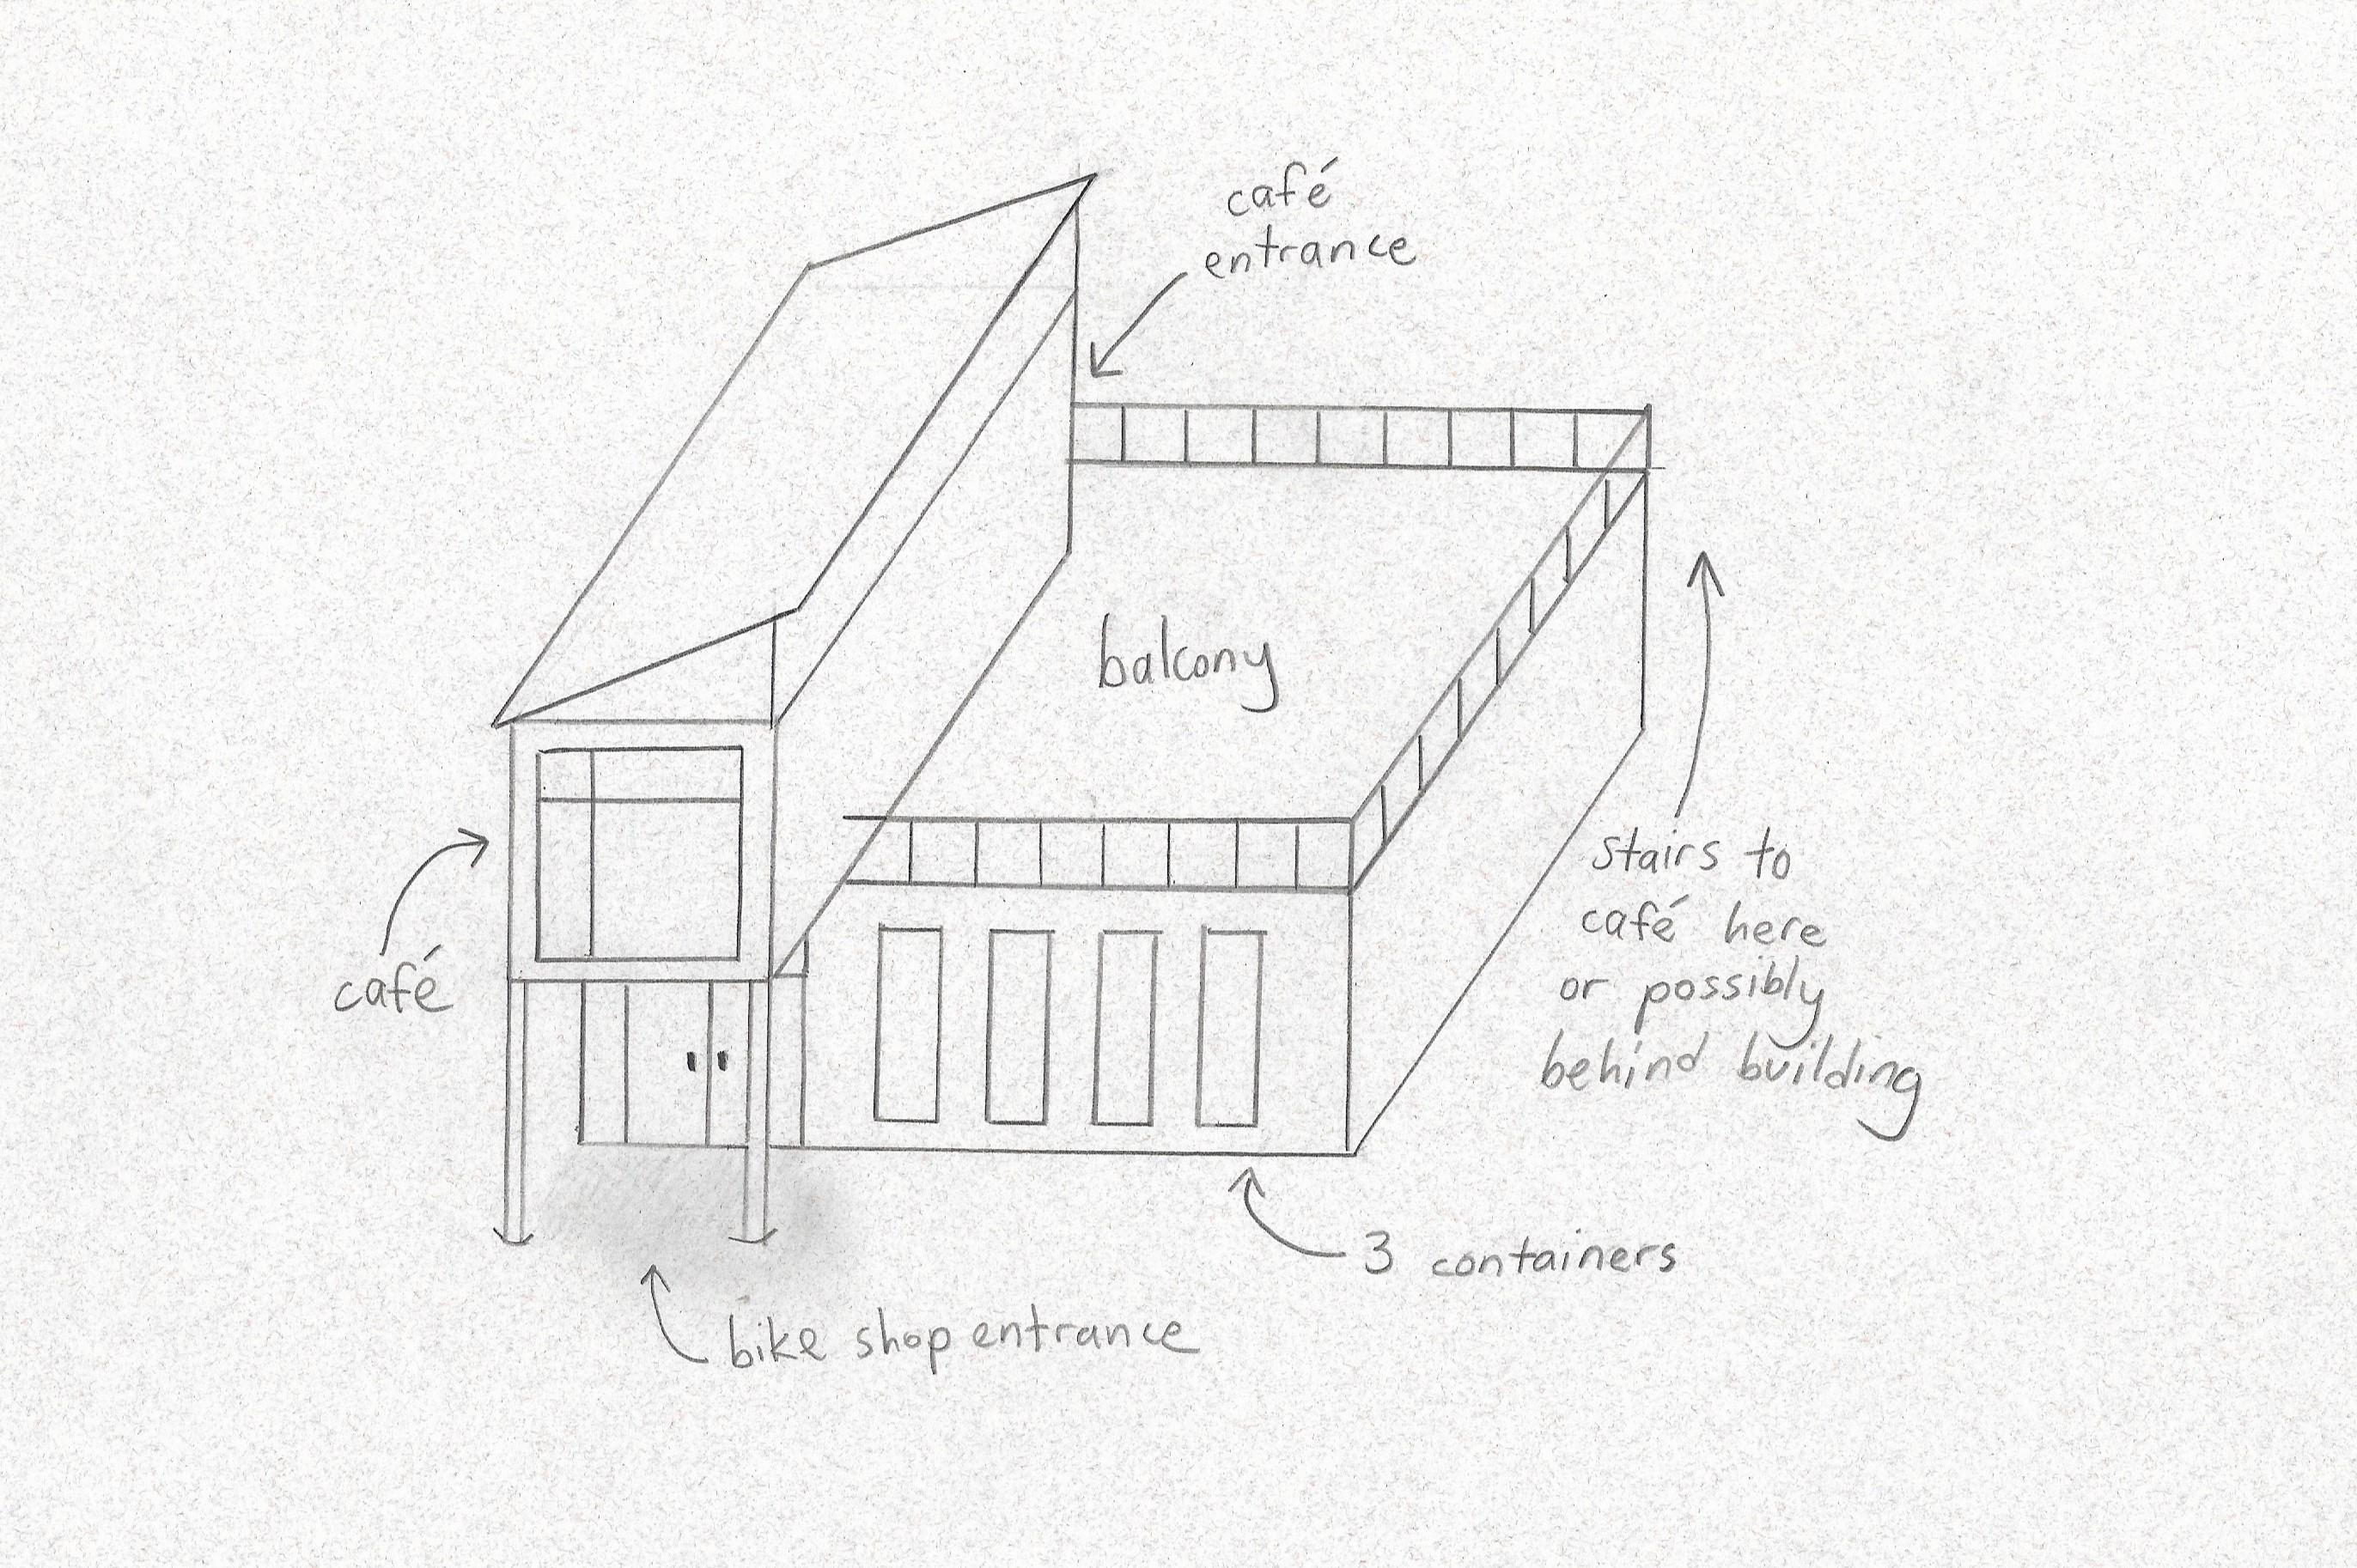 café
entrance
balcony
café
stairs to
café here
or possibly
behind building
3 containers
bike shop entrance